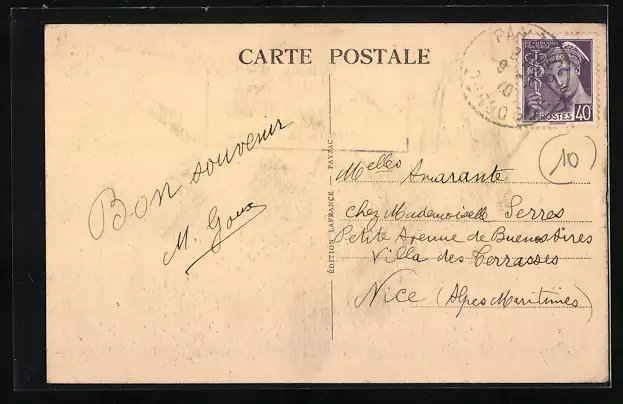 CARTE POSTALE
POSTES
40
10
Bon souvenir
M. Goux
ÉDITION LAFRANCE — PAYZAC
Melles Amarante
chez Mademoiselle Serres
Petite Avenue de Buenos Aires
Villa des Terrasses
Nice (Alpes Maritimes)